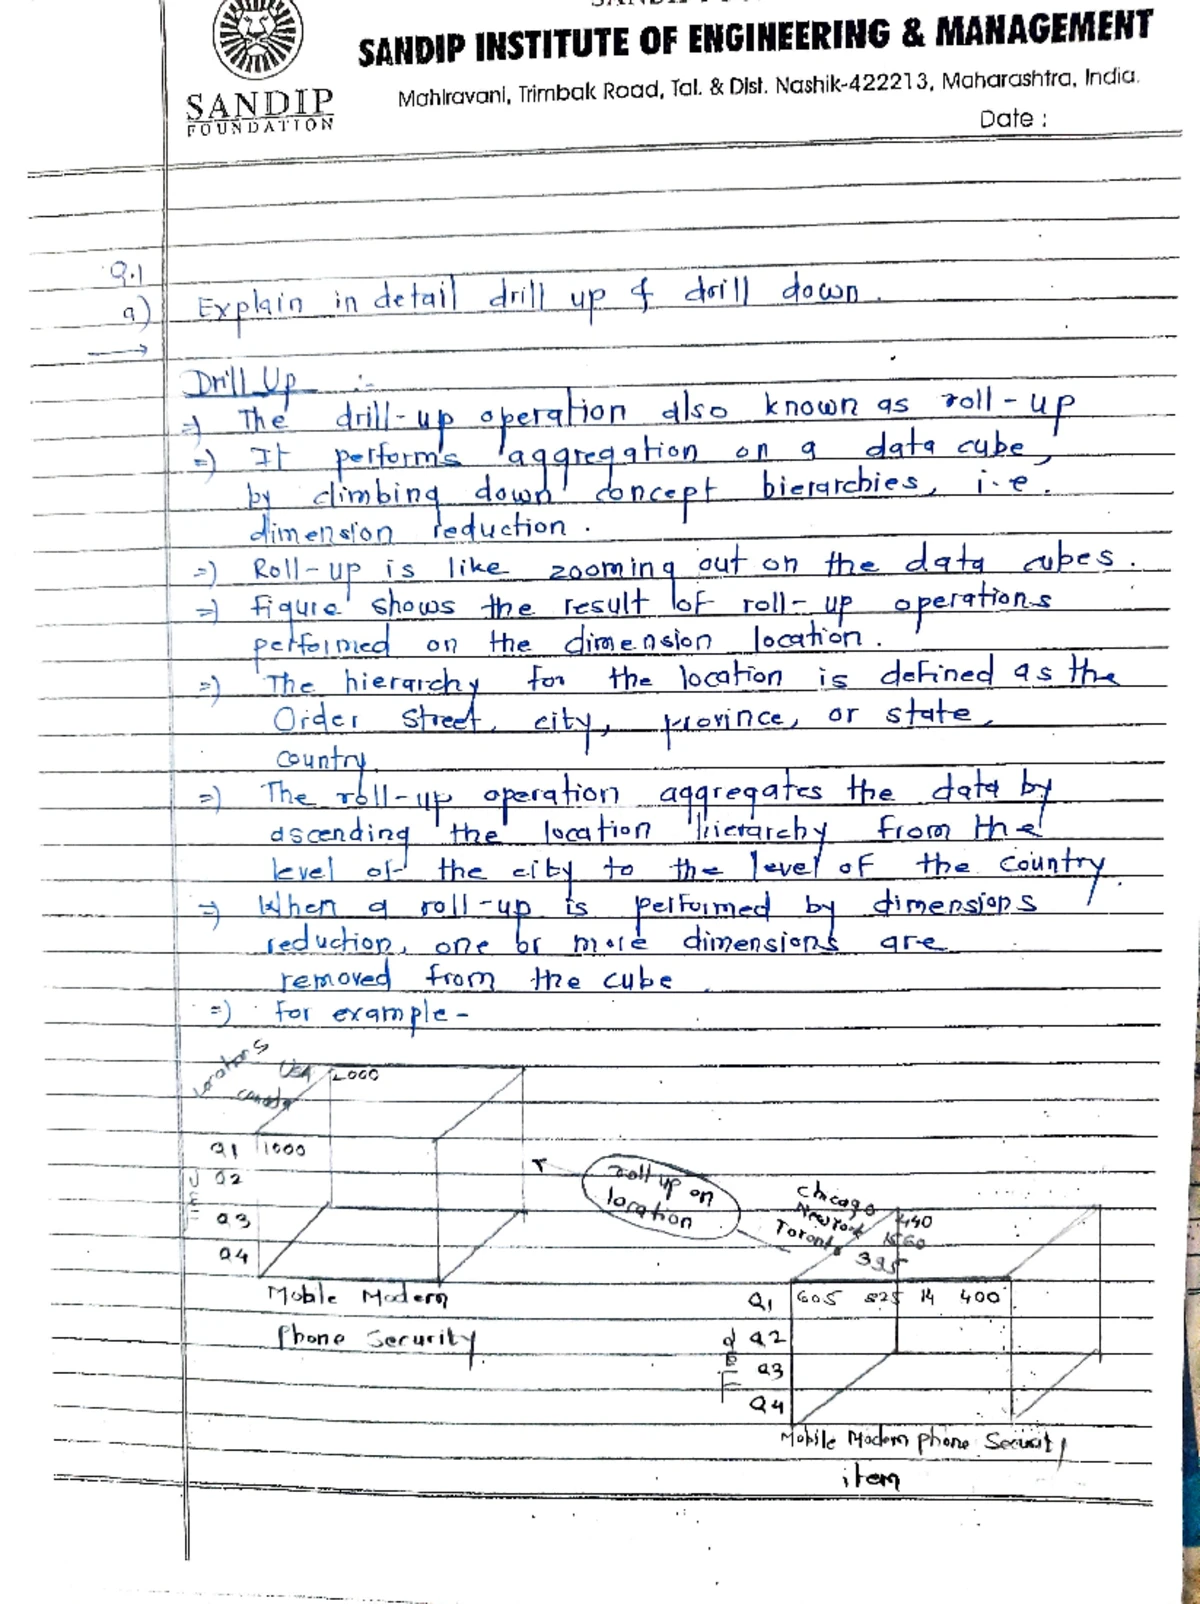 SANDIP INSTITUTE OF ENGINEERING & MANAGEMENT
SANDIP
FOUNDATION
Mahiravani, Trimbak Road, Tal. & Dist. Nashik-422213, Maharashtra, India.
Date :
Q.1
a) Explain in detail drill up & drill down.
Drill Up :-
=) The drill-up operation also known as roll-up
=) It performs aggregation on a data cube,
by climbing down concept hierarchies, i.e.
dimension reduction.
=) Roll-up is like zooming out on the data cubes.
=) figure shows the result of roll-up operations
performed on the dimension location.
=) The hierarchy for the location is defined as the
Order street, city, province, or state,
country.
=) The roll-up operation aggregates the data by
ascending the location hierarchy from the
level of the city to the level of the country.
=) When a roll-up is performed by dimensions
reduction, one or more dimensions are
removed from the cube.
=) for example -
Locations
USA 2000
Canada
Q1 1000
Q2
Q3
Q4
Moble Modern
Phone Security
roll up on
location
Chicago 440
New York 1560
Toronto 395
Q1 605 825 14 400
Q2
Q3
Q4
Mobile Modern phone Security
item